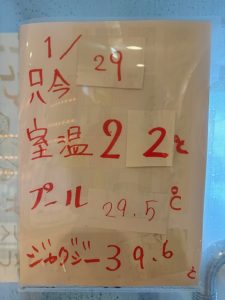 1/29
只今
室温 22℃
プール 29.5℃
ジャグジー 39.6℃